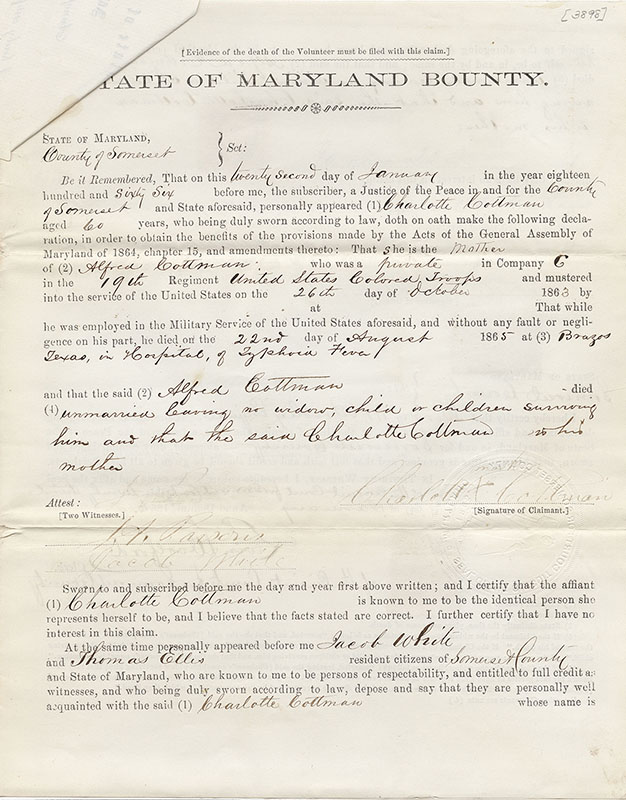 [3898]
[Evidence of the death of the Volunteer must be filed with this claim.]
TATE OF MARYLAND BOUNTY.
STATE OF MARYLAND,
County of Somerset } Sct:
Be it Remembered, That on this twenty second day of January in the year eighteen
hundred and Sixty Six before me, the subscriber, a Justice of the Peace in and for the County
of Somerset and State aforesaid, personally appeared (1) Charlotte Cottman
aged 60 years, who being duly sworn according to law, doth on oath make the following decla-
ration, in order to obtain the benefits of the provisions made by the Acts of the General Assembly of
Maryland of 1864, chapter 15, and amendments thereto: That she is the Mother
of (2) Alfred Cottman who was a private in Company
in the 19th Regiment United States Colored Troops and mustered
into the service of the United States on the 26th day of October 1863 by
at That while
he was employed in the Military Service of the United States aforesaid, and without any fault or negli-
gence on his part, he died on the 22nd day of August 1865 at (3) Brazos
Texas, in Hospital, of Typhoid Fever
and that the said (2) Alfred Cottman died
(4) unmarried leaving no widow, child or children surviving
him and that the said Charlotte Cottman is his
mother
Charlotte X Cottman
Attest:
[Two Witnesses.] [Signature of Claimant.]
Parsons
Jacob White
Sworn to and subscribed before me the day and year first above written; and I certify that the affiant
(1) Charlotte Cottman is known to me to be the identical person she
represents herself to be, and I believe that the facts stated are correct. I further certify that I have no
interest in this claim.
At the same time personally appeared before me Jacob White
and Thomas Ellis resident citizens of Somerset County
and State of Maryland, who are known to me to be persons of respectability, and entitled to full credit as
witnesses, and who being duly sworn according to law, depose and say that they are personally well
acquainted with the said (1) Charlotte Cottman whose name is